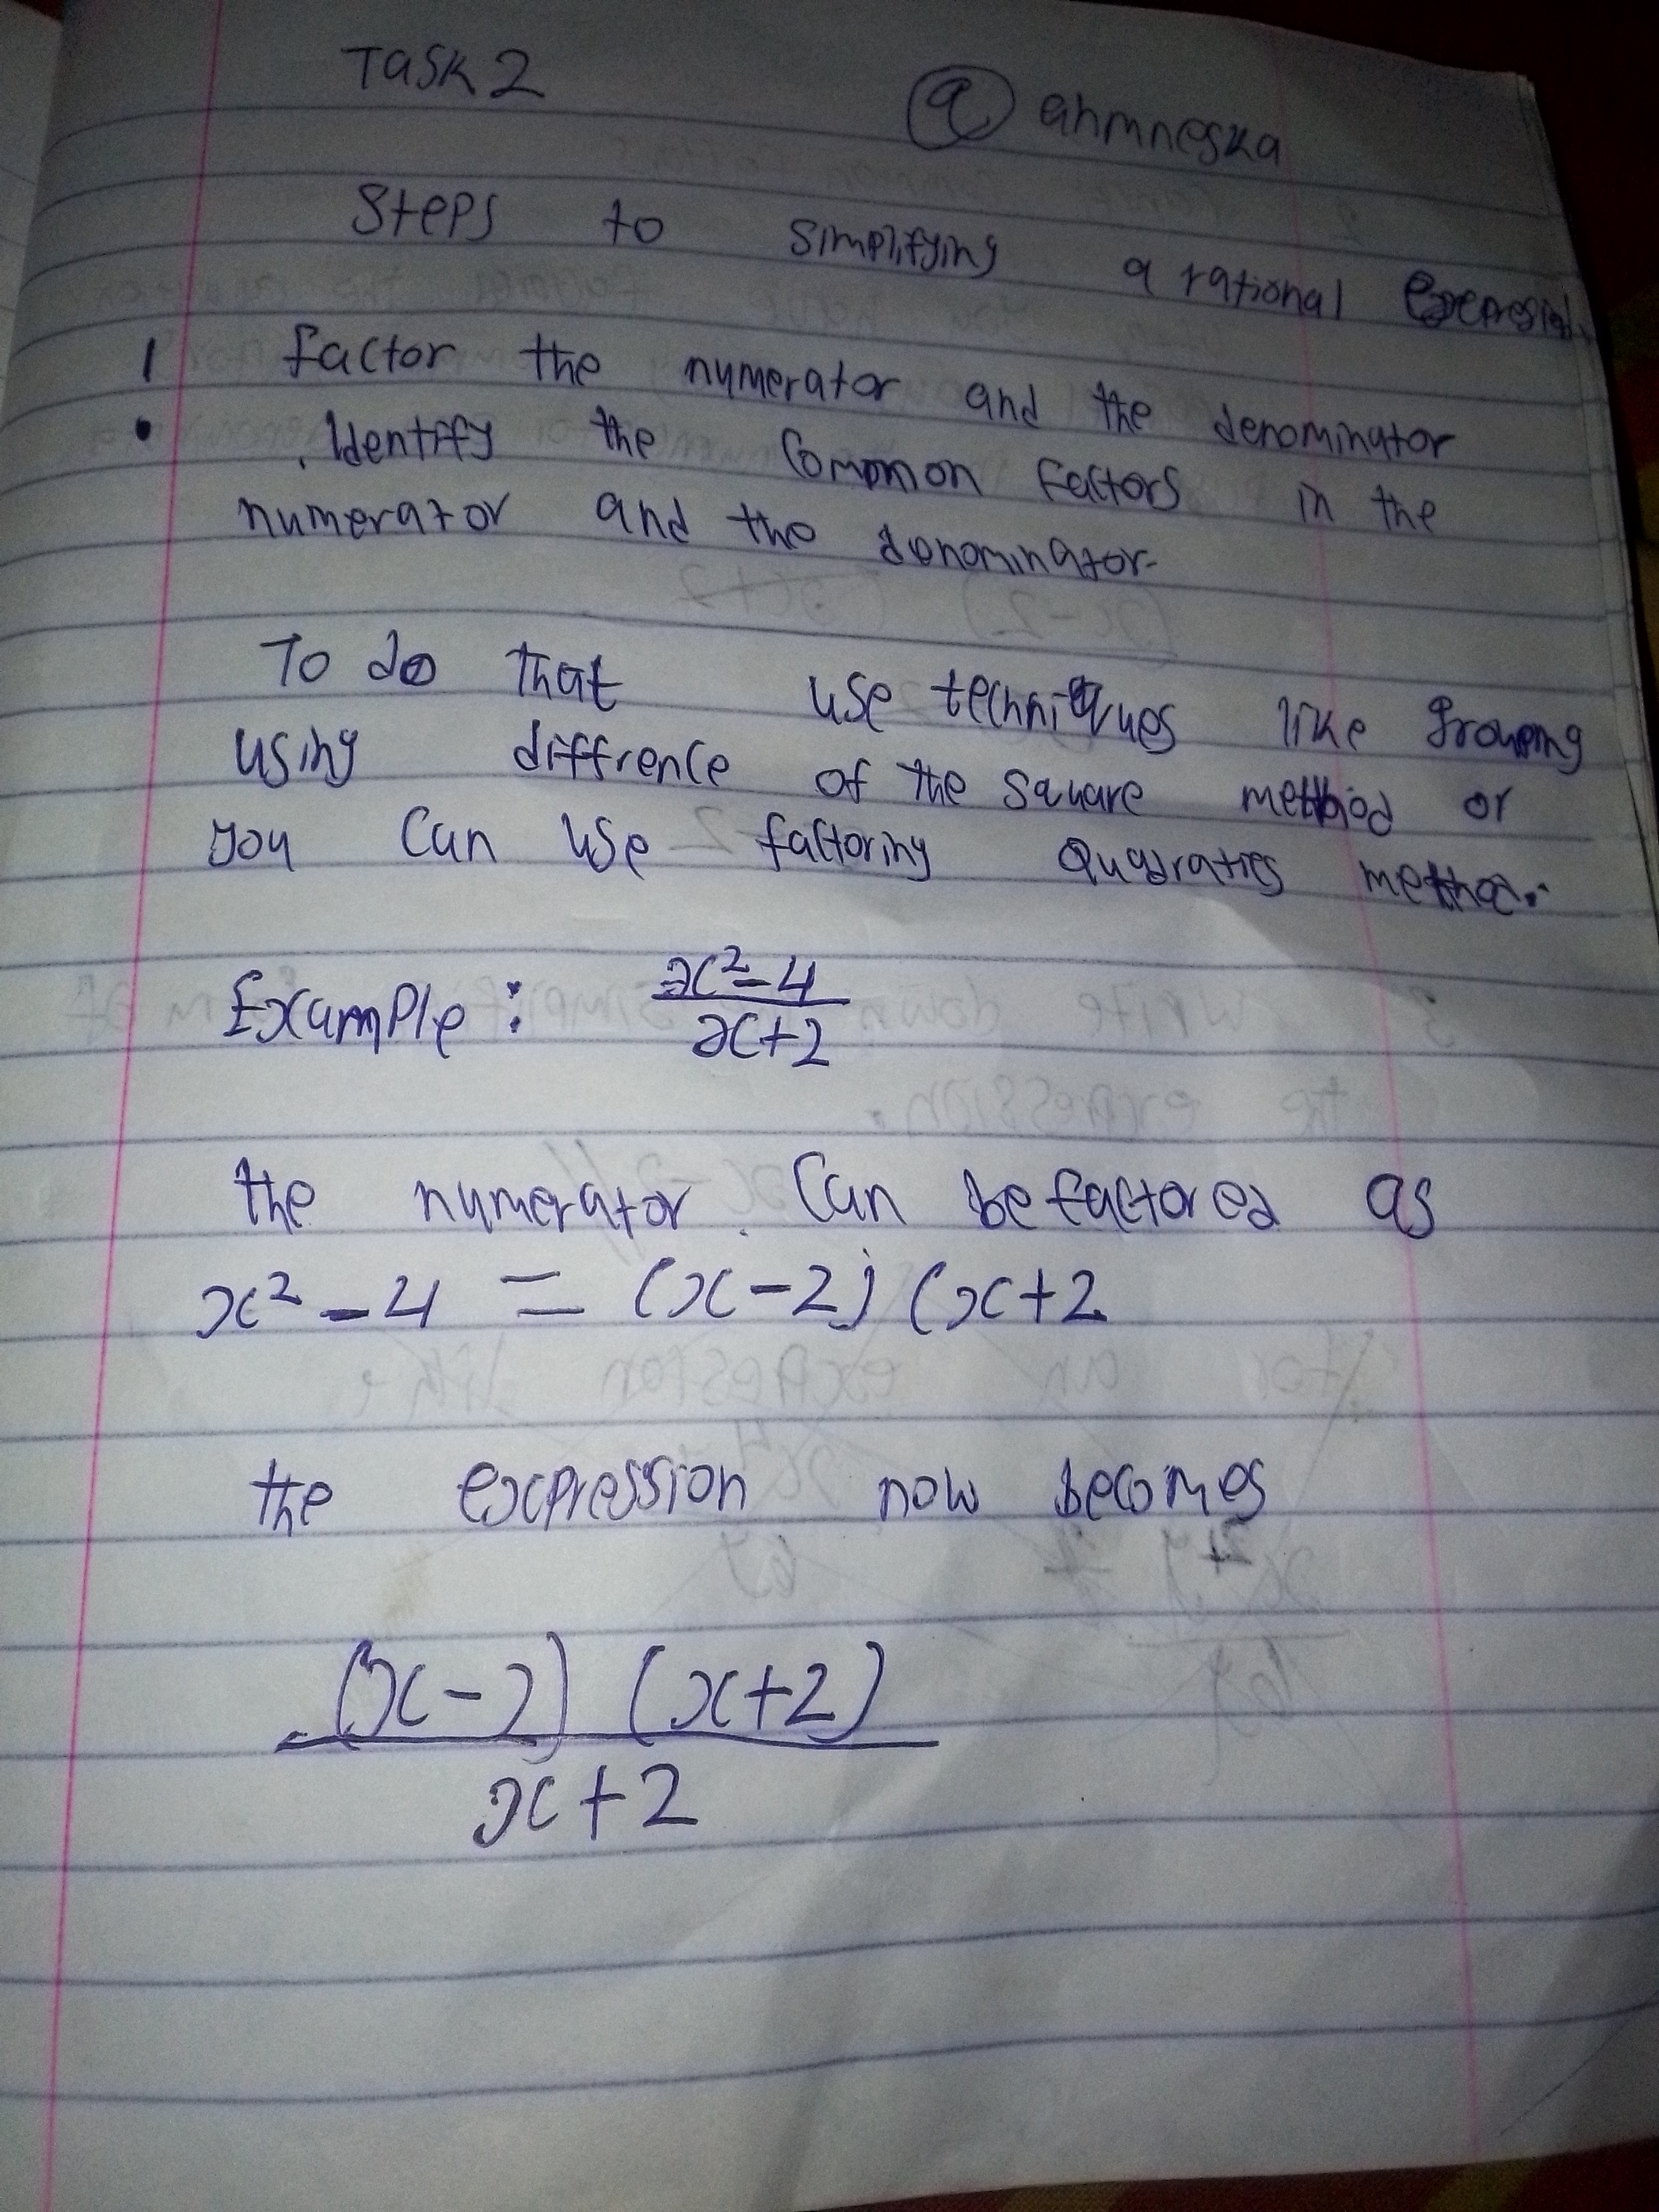 TASK 2
@ ahmneska
Steps to simplifying a rational
1 factor the numerator and the denominator
. Identify the Common factors in the
numerator and the denominator
To do that use techniques like grouping
using diffrence of the square method or
you can use factoring quadratics method.
Example: x²-4
x+2
the numerator can be factored as
x² - 4 = (x-2) (x+2
the expression now becomes
(x-2) (x+2)
x+2